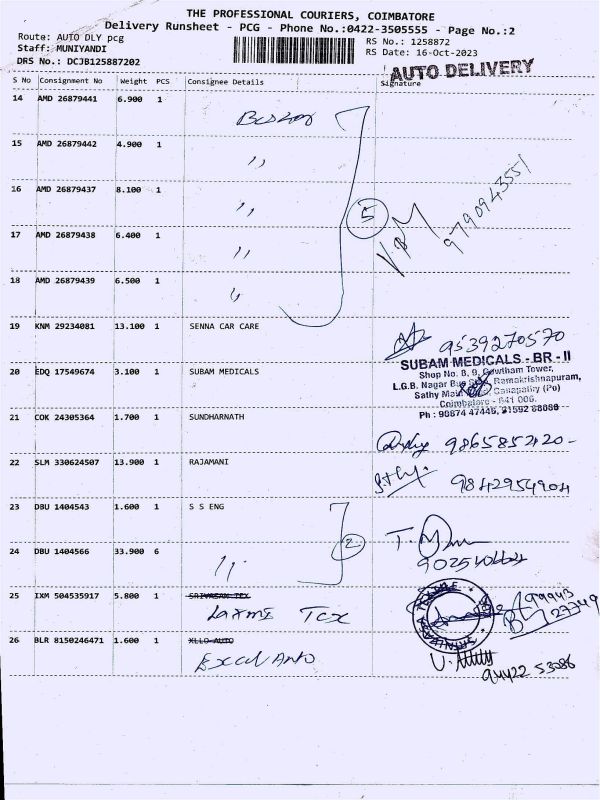 THE PROFESSIONAL COURIERS, COIMBATORE
Delivery Runsheet - PCG - Phone No.:0422-3505555 - Page No.:2
Route: AUTO DLY pcg
Staff: MUNIYANDI
DRS No.: DCJB125887202
RS No.: 1258872
RS Date: 16-Oct-2023
AUTO DELIVERY
S No Consignment No Weight PCS Consignee Details Signature
14 AMD 26879441 6.900 1
15 AMD 26879442 4.900 1 ,,
16 AMD 26879437 8.100 1 ,,
5
9790943551
17 AMD 26879438 6.400 1 ,,
18 AMD 26879439 6.500 1 ,,
19 KNM 29234081 13.100 1 SENNA CAR CARE
9539270570
20 EDQ 17549674 3.100 1 SUBAM MEDICALS
SUBAM MEDICALS - BR - II
Shop No. 8, 9, Gowtham Tower,
L.G.B. Nagar Bus Ramakrishnapuram,
Sathy Main Ganapathy (Po)
Coimbatore - 641 006.
Ph : 90874 47445,
21 COK 24305364 1.700 1 SUNDHARNATH
9865852120
22 SLM 330624507 13.900 1 RAJAMANI
9842954904
23 DBU 1404543 1.600 1 S S ENG
2
24 DBU 1404566 33.900 6 ,,
25 IXM 504535917 5.800 1 SRIVASAN TEX
Laxmi Tex
99943
27749
26 BLR 8150246471 1.600 1 XLLO AUTO
Excel Auto
94422 53086